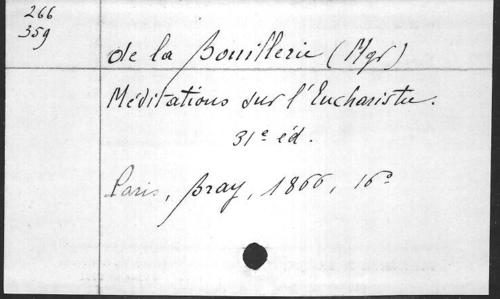 266
359
de la Bouillerie (Mgr)
Méditations sur l'Eucharistie.
31e éd.
Paris, Bray, 1866, 16°